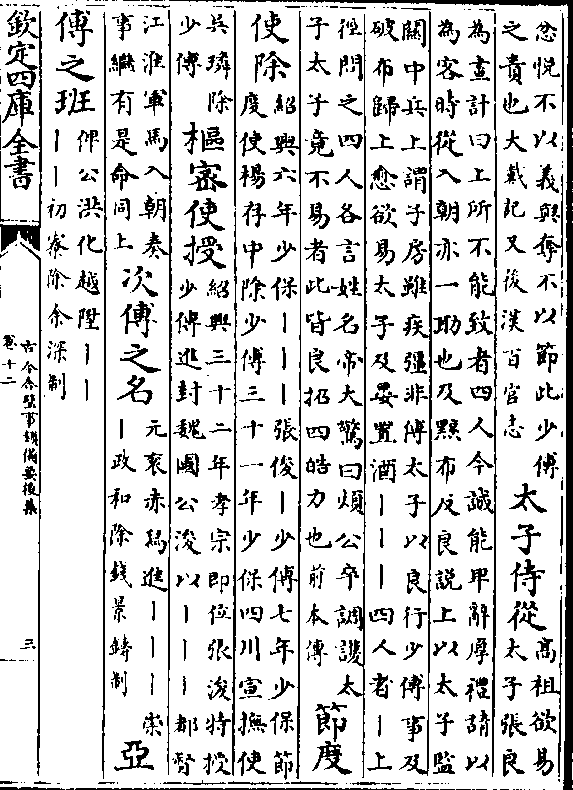 忿悦不以義與奪不以節此少傅
之責也大戴記又後漢百官志
太子侍從
高祖欲易
太子張良
為畫計曰上所不能致者四人今誠能卑辭厚禮請以
為客時從入朝亦一助也及黥布反良説上以太子監
關中兵上謂子房雖疾彊非傅太子以良行少傅事及
破布歸上愈欲易太子及晏置酒｜｜｜四人者｜上
徑問之四人各言姓名帝大驚曰煩公卒調護太
子太子竟不易者此皆良招四皓力也前本傳
節度
使除
紹興六年少保｜｜｜張俊｜少傅七年少保節
度使楊存中除少傅三十一年少保四川宣撫使
吳璘除
少傅
樞密使授
紹興三十二年孝宗即位張浚特授
少傅進封魏國公浚以｜｜｜都督
江淮軍馬入朝奏
事繼有是命同上
次傅之名
元袞赤舄進｜｜｜｜崇
｜政和除錢景鑄制
亞
傅之班
俾公洪化越陞｜｜
｜｜初寮除余深制
欽定四庫全書
古今合璧事類備要後集
卷十二
三